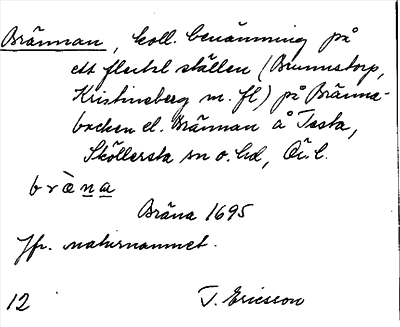 Brännan, koll. benämning på
ett flertal ställen (Brunnstorp,
Kristineberg m. fl) på Bränna-
backen el. Brännan å Testa,
Sköllersta sn o. hd, Ör. l.
bräna
Bräna 1695
Jfr. naturnamnet.
12 T. Ericsson